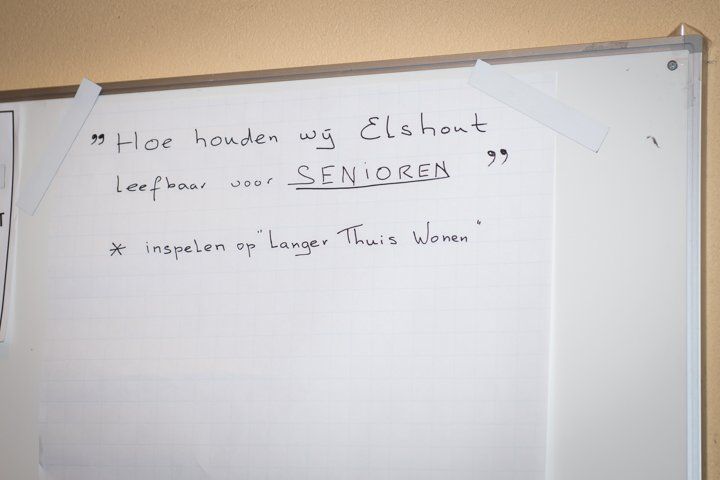 " Hoe houden wij Elshout
leefbaar voor SENiOREN "
* inspelen op "Langer Thuis Wonen"
T